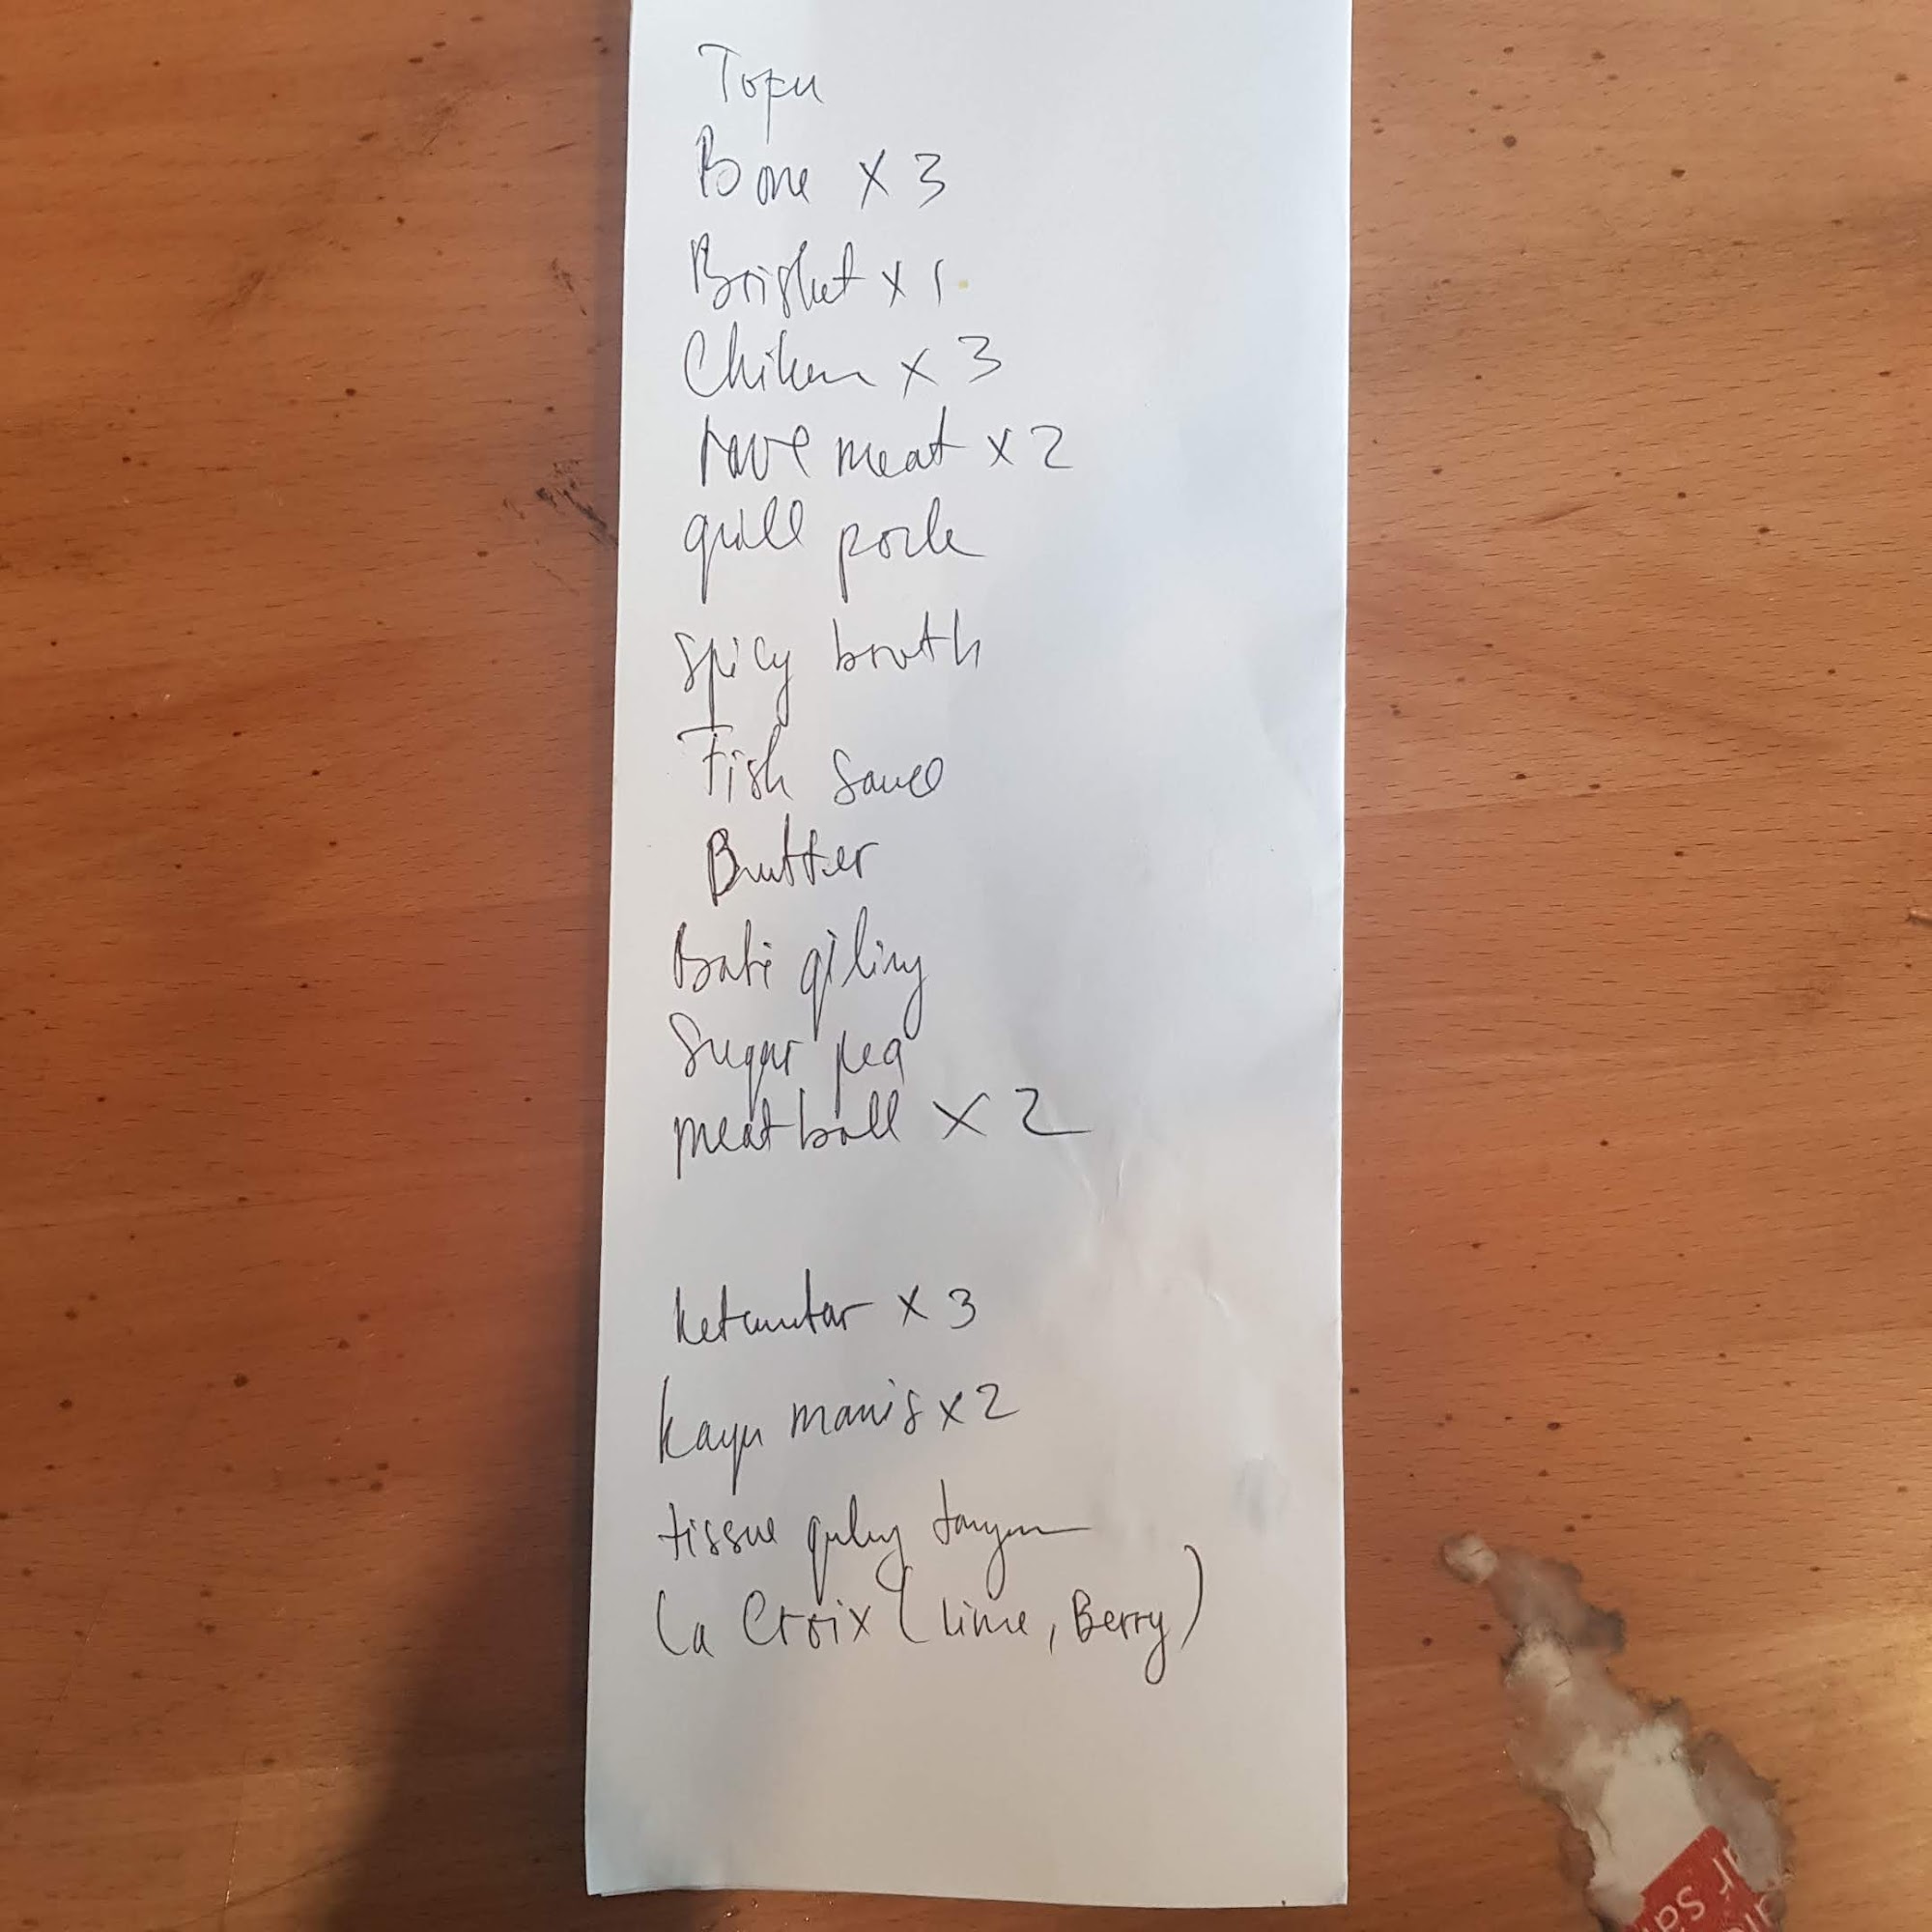 Tofu
Bone x 3
Brisket x 1
Chiken x 3
meat x 2
grill pork
Spicy broth
Fish sauce
Butter
Babi giling
Sugar pea
meat ball x 2
ketumbar x 3
kayu manis x 2
tissue
La Croix (Lime, Berry)